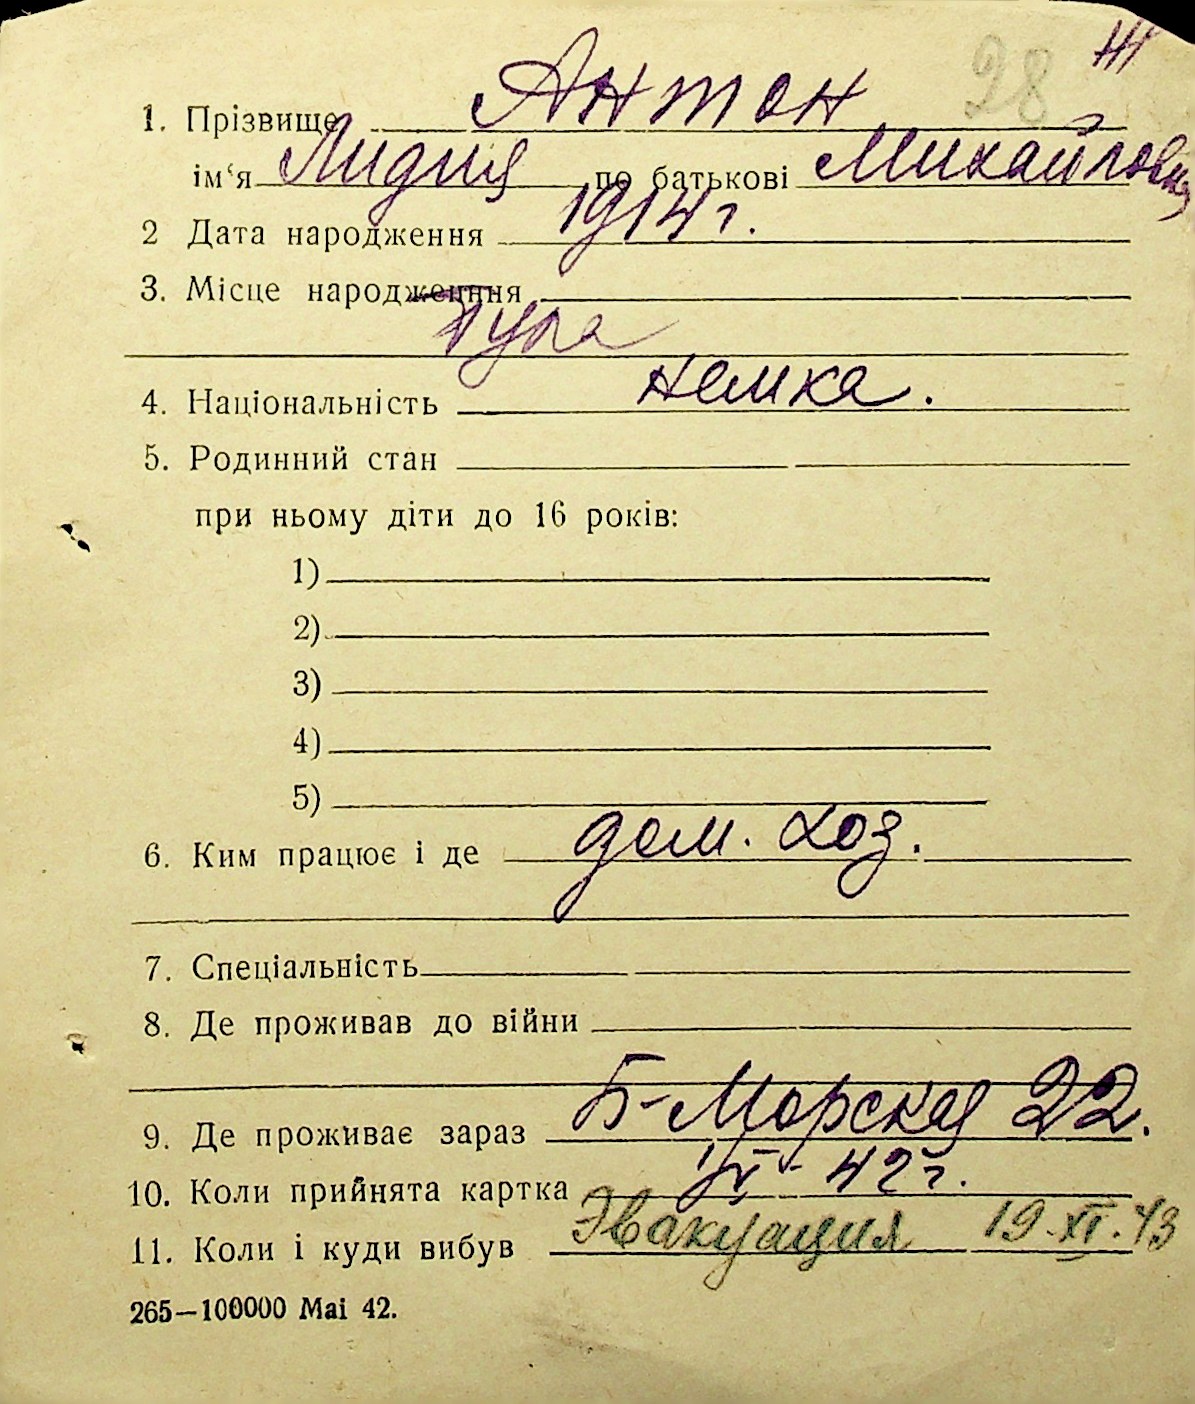 28 Ж
1. Прізвище Антон
ім‘я Лидия по батькові Михайловна
2 Дата народження 1914 г.
3. Місце народження
Тула
4. Національність немка.
5. Родинний стан
при ньому діти до 16 років:
1)
2)
3)
4)
5)
6. Ким працює і де дом. хоз.
7. Спеціальність
8. Де проживав до війни
9. Де проживає зараз Б-Морская 22.
10. Коли прийнята картка 42 г.
11. Коли і куди вибув Эвакуация 19.XI.43
265—100000 Mai 42.